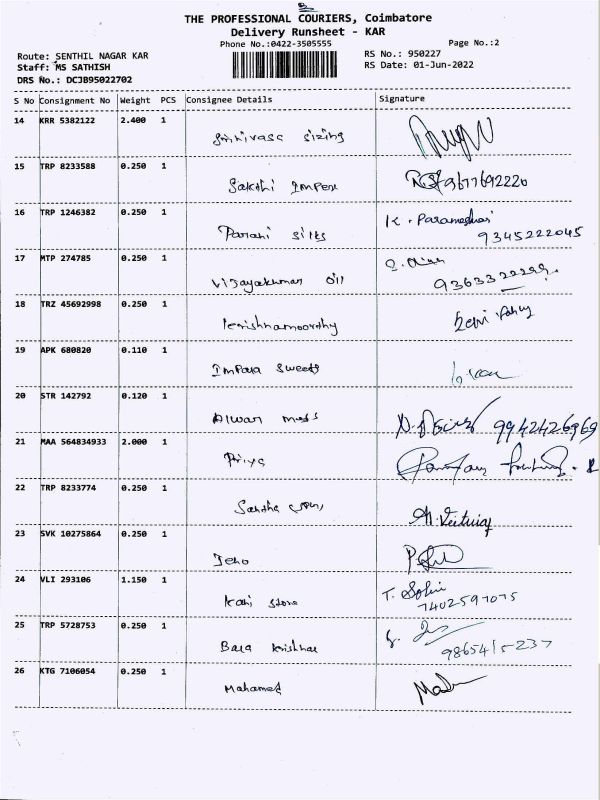 THE PROFESSIONAL COURIERS, Coimbatore
Delivery Runsheet - KAR
Phone No.:0422-3505555
Page No.:2
Route: SENTHIL NAGAR KAR
RS No.: 950227
Staff: MS SATHISH
RS Date: 01-Jun-2022
DRS No.: DCJB95022702
S No Consignment No Weight PCS Consignee Details Signature
14 KRR 5382122 2.400 1
Srinivasa sizing
15 TRP 8233588 0.250 1
Sakthi Impex 9677692220
16 TRP 1246382 0.250 1
K. Parameshwari
Parani silks 9345222045
17 MTP 274785 0.250 1
Vijayakumar Oil
18 TRZ 45692998 0.250 1
krishnamoorthy
19 APK 680820 0.110 1
Impala Sweets
20 STR 142792 0.120 1
Alwar mess 9942426969
21 MAA 564834933 2.000 1
Priya
22 TRP 8233774 0.250 1
Santha
23 SVK 10275864 0.250 1
Jeno
24 VLI 293106 1.150 1
T.
Kani store 7402597075
25 TRP 5728753 0.250 1
Bala krishnan 9865415237
26 KTG 7106054 0.250 1
Mahamed